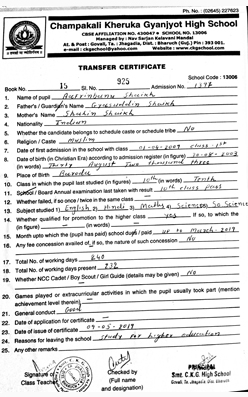 Ph. No. : (02645) 227623
Champakali Kheruka Gyanjyot High School
CBSE AFFILIATION NO. 430047 • SCHOOL NO. 13006
Managed by : Nav Sarjan Kelavani Mandal
At. & Post : Govali, Ta. : Jhagadia, Dist. : Bharuch (Guj.) Pin : 393 001.
TRANSFER CERTIFICATE
School Code : 13006
Book No. 15 Sl. No. 925 Admission No. 1398
1. Name of pupil Shaikh
2. Father's / Guardian's Name Shaikh
3. Mother's Name Shaikh
4. Nationality Indian
5. Whether the candidate belongs to schedule caste or schedule tribe No
6. Religion / Caste Muslim
7. Date of first admission in the school with class
8. Date of birth (in Christian Era) according to admission register (in figure)
(in words) August Two thousand three
9. Place of Birth
10. Class in which the pupil last studied (in figure) 10th (in words) Tenth
11. School / Board Annual examination last taken with result 10th class pass
12. Whether failed, if so once / twice in the same class
13. Subject studied English Hindi Maths Sciences So Science
14. Whether qualified for promotion to the higher class yes If so, to which the
(in figure) (in words)
15. Month upto which the (pupil has paid) school dues / paid up to March-2019
16. Any fee concession availed of, if so, the nature of such concession No
17. Total No. of working days 240
18. Total No. of working days present 232
19. Whether NCC Cadet / Boy Scout / Girl Guide (details may be given) No
20. Games played or extracurricular activities in which the pupil usually took part (mention
achievement level therein)
21. General conduct Good
22. Date of application for certificate
23. Date of issue of certificate 09-05-2019
24. Reasons for leaving the school study for higher education
25. Any other remarks
Signature of
Class Teacher
Checked by
(Full name
and designation)
PRINCIPAL
Smt. C.K.G. High School